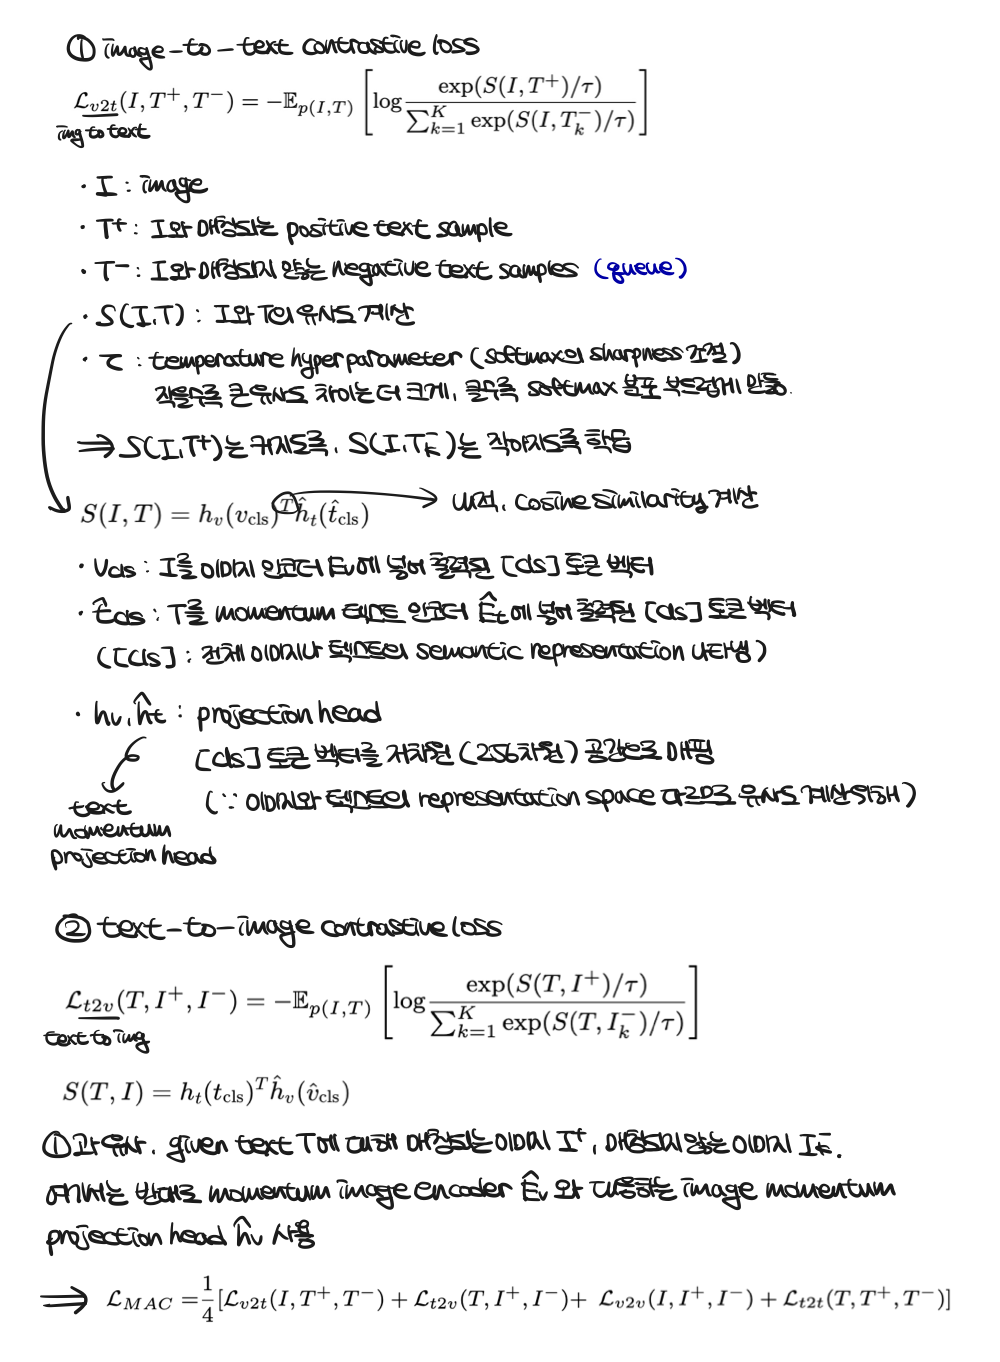 ① image-to-text contrastive loss
$\mathcal{L}_{v2t}(I, T^+, T^-) = -\mathbb{E}_{p(I,T)} \left[ \log \frac{\exp(S(I, T^+)/\tau)}{\sum_{k=1}^{K} \exp(S(I, T_k^-)/\tau)} \right]$
img to text
· I : image
· T⁺ : I와 매칭되는 positive text sample
· T⁻ : I와 매칭되지 않는 negative text samples (queue)
· S(I,T) : I와 T의 유사도 계산
· τ : temperature hyper parameter (softmax의 sharpness 조절)
작을수록 큰 유사도 차이는 더 크게, 클수록 softmax 분포 부드럽게 만듦.
⇒ S(I,T⁺)는 커지도록, S(I,Tₖ⁻)는 작아지도록 학습
$S(I, T) = h_v(v_{\text{cls}})^T \hat{h}_t(\hat{t}_{\text{cls}})$ → 내적, cosine similarity 계산
· Vcls : I를 이미지 인코더 Ev에 넣어 출력된 [cls] 토큰 벡터
· t̂cls : T를 momentum 텍스트 인코더 Êt에 넣어 출력된 [cls] 토큰 벡터
([cls] : 전체 이미지나 텍스트의 semantic representation 나타냄)
· hv, ĥt : projection head
[cls] 토큰 벡터를 저차원 (256차원) 공간으로 매핑
(∵ 이미지와 텍스트의 representation space 다르므로 유사도 계산 위해)
text
momentum
projection head
② text-to-image contrastive loss
$\mathcal{L}_{t2v}(T, I^+, I^-) = -\mathbb{E}_{p(I,T)} \left[ \log \frac{\exp(S(T, I^+)/\tau)}{\sum_{k=1}^{K} \exp(S(T, I_k^-)/\tau)} \right]$
text to img
$S(T, I) = h_t(t_{\text{cls}})^T \hat{h}_v(\hat{v}_{\text{cls}})$
①과 유사. given text T에 대해 매칭되는 이미지 I⁺, 매칭되지 않는 이미지 Iₖ⁻.
여기서는 반대로 momentum image encoder Êv 와 대응하는 image momentum
projection head ĥv 사용
⇒ $\mathcal{L}_{MAC} = \frac{1}{4}[\mathcal{L}_{v2t}(I, T^+, T^-) + \mathcal{L}_{t2v}(T, I^+, I^-) + \mathcal{L}_{v2v}(I, I^+, I^-) + \mathcal{L}_{t2t}(T, T^+, T^-)]$